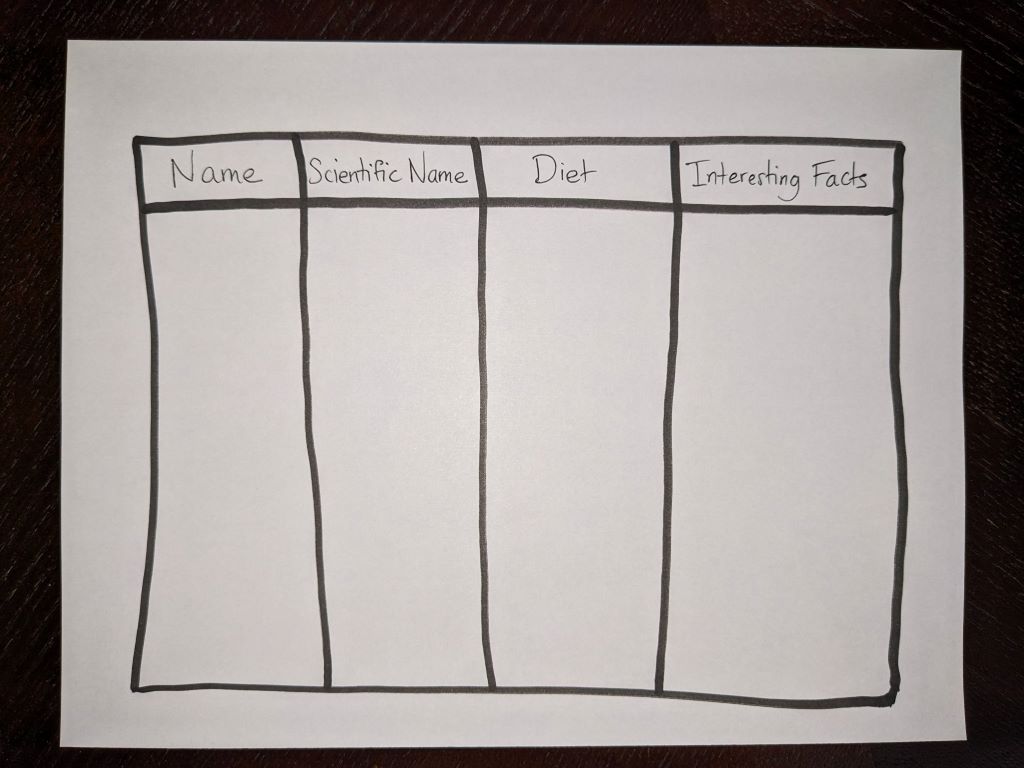 Name Scientific Name Diet Interesting Facts